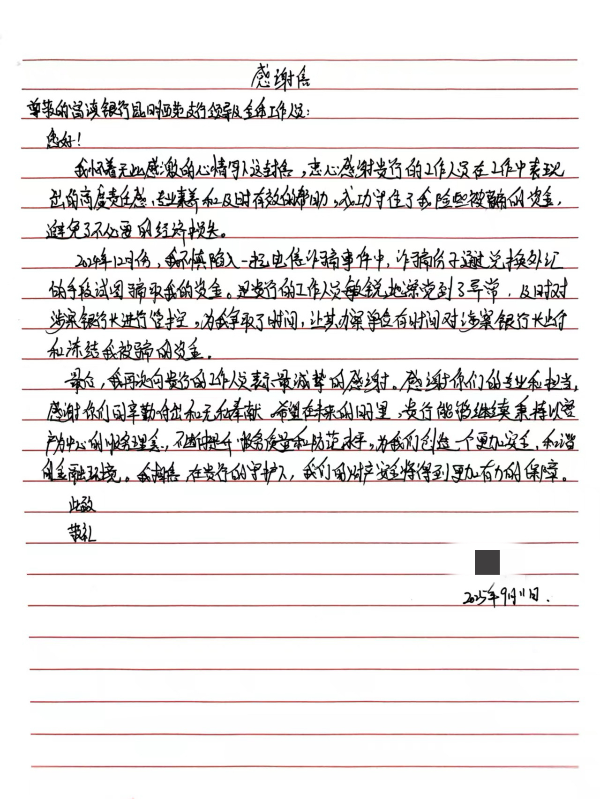 感谢信
尊敬的富滇银行昆明西苑支行领导及全体工作人员:
您好!
我怀着无比感激的心情写下这封信,衷心感谢贵行的工作人员在工作中表现
出的高度责任感、专业素养和及时有效的帮助,成功守住了我险些被骗的资金,
避免了不必要的经济损失。
2024年12月份,我不慎陷入一起电信诈骗事件中,诈骗份子通过兑换外汇
的手段试图骗取我的资金。是贵行的工作人员敏锐地察觉到了异常,及时对
涉案银行卡进行管控,为我争取了时间,让其办案单位有时间对涉案银行卡止付
和冻结我被骗的资金。
最后,我再次向贵行的工作人员表示最诚挚的感谢。感谢你们的专业和担当,
感谢你们的辛勤付出和无私奉献。希望在未来的日里,贵行能够继续秉持以客
户为中心的服务理念,不断提升服务质量和防范水平,为我们创造一个更加安全、和谐
的金融环境。我相信,在贵行的守护下,我们的财产安全将得到更加有力的保障。
此致
敬礼
2025年9月11日.